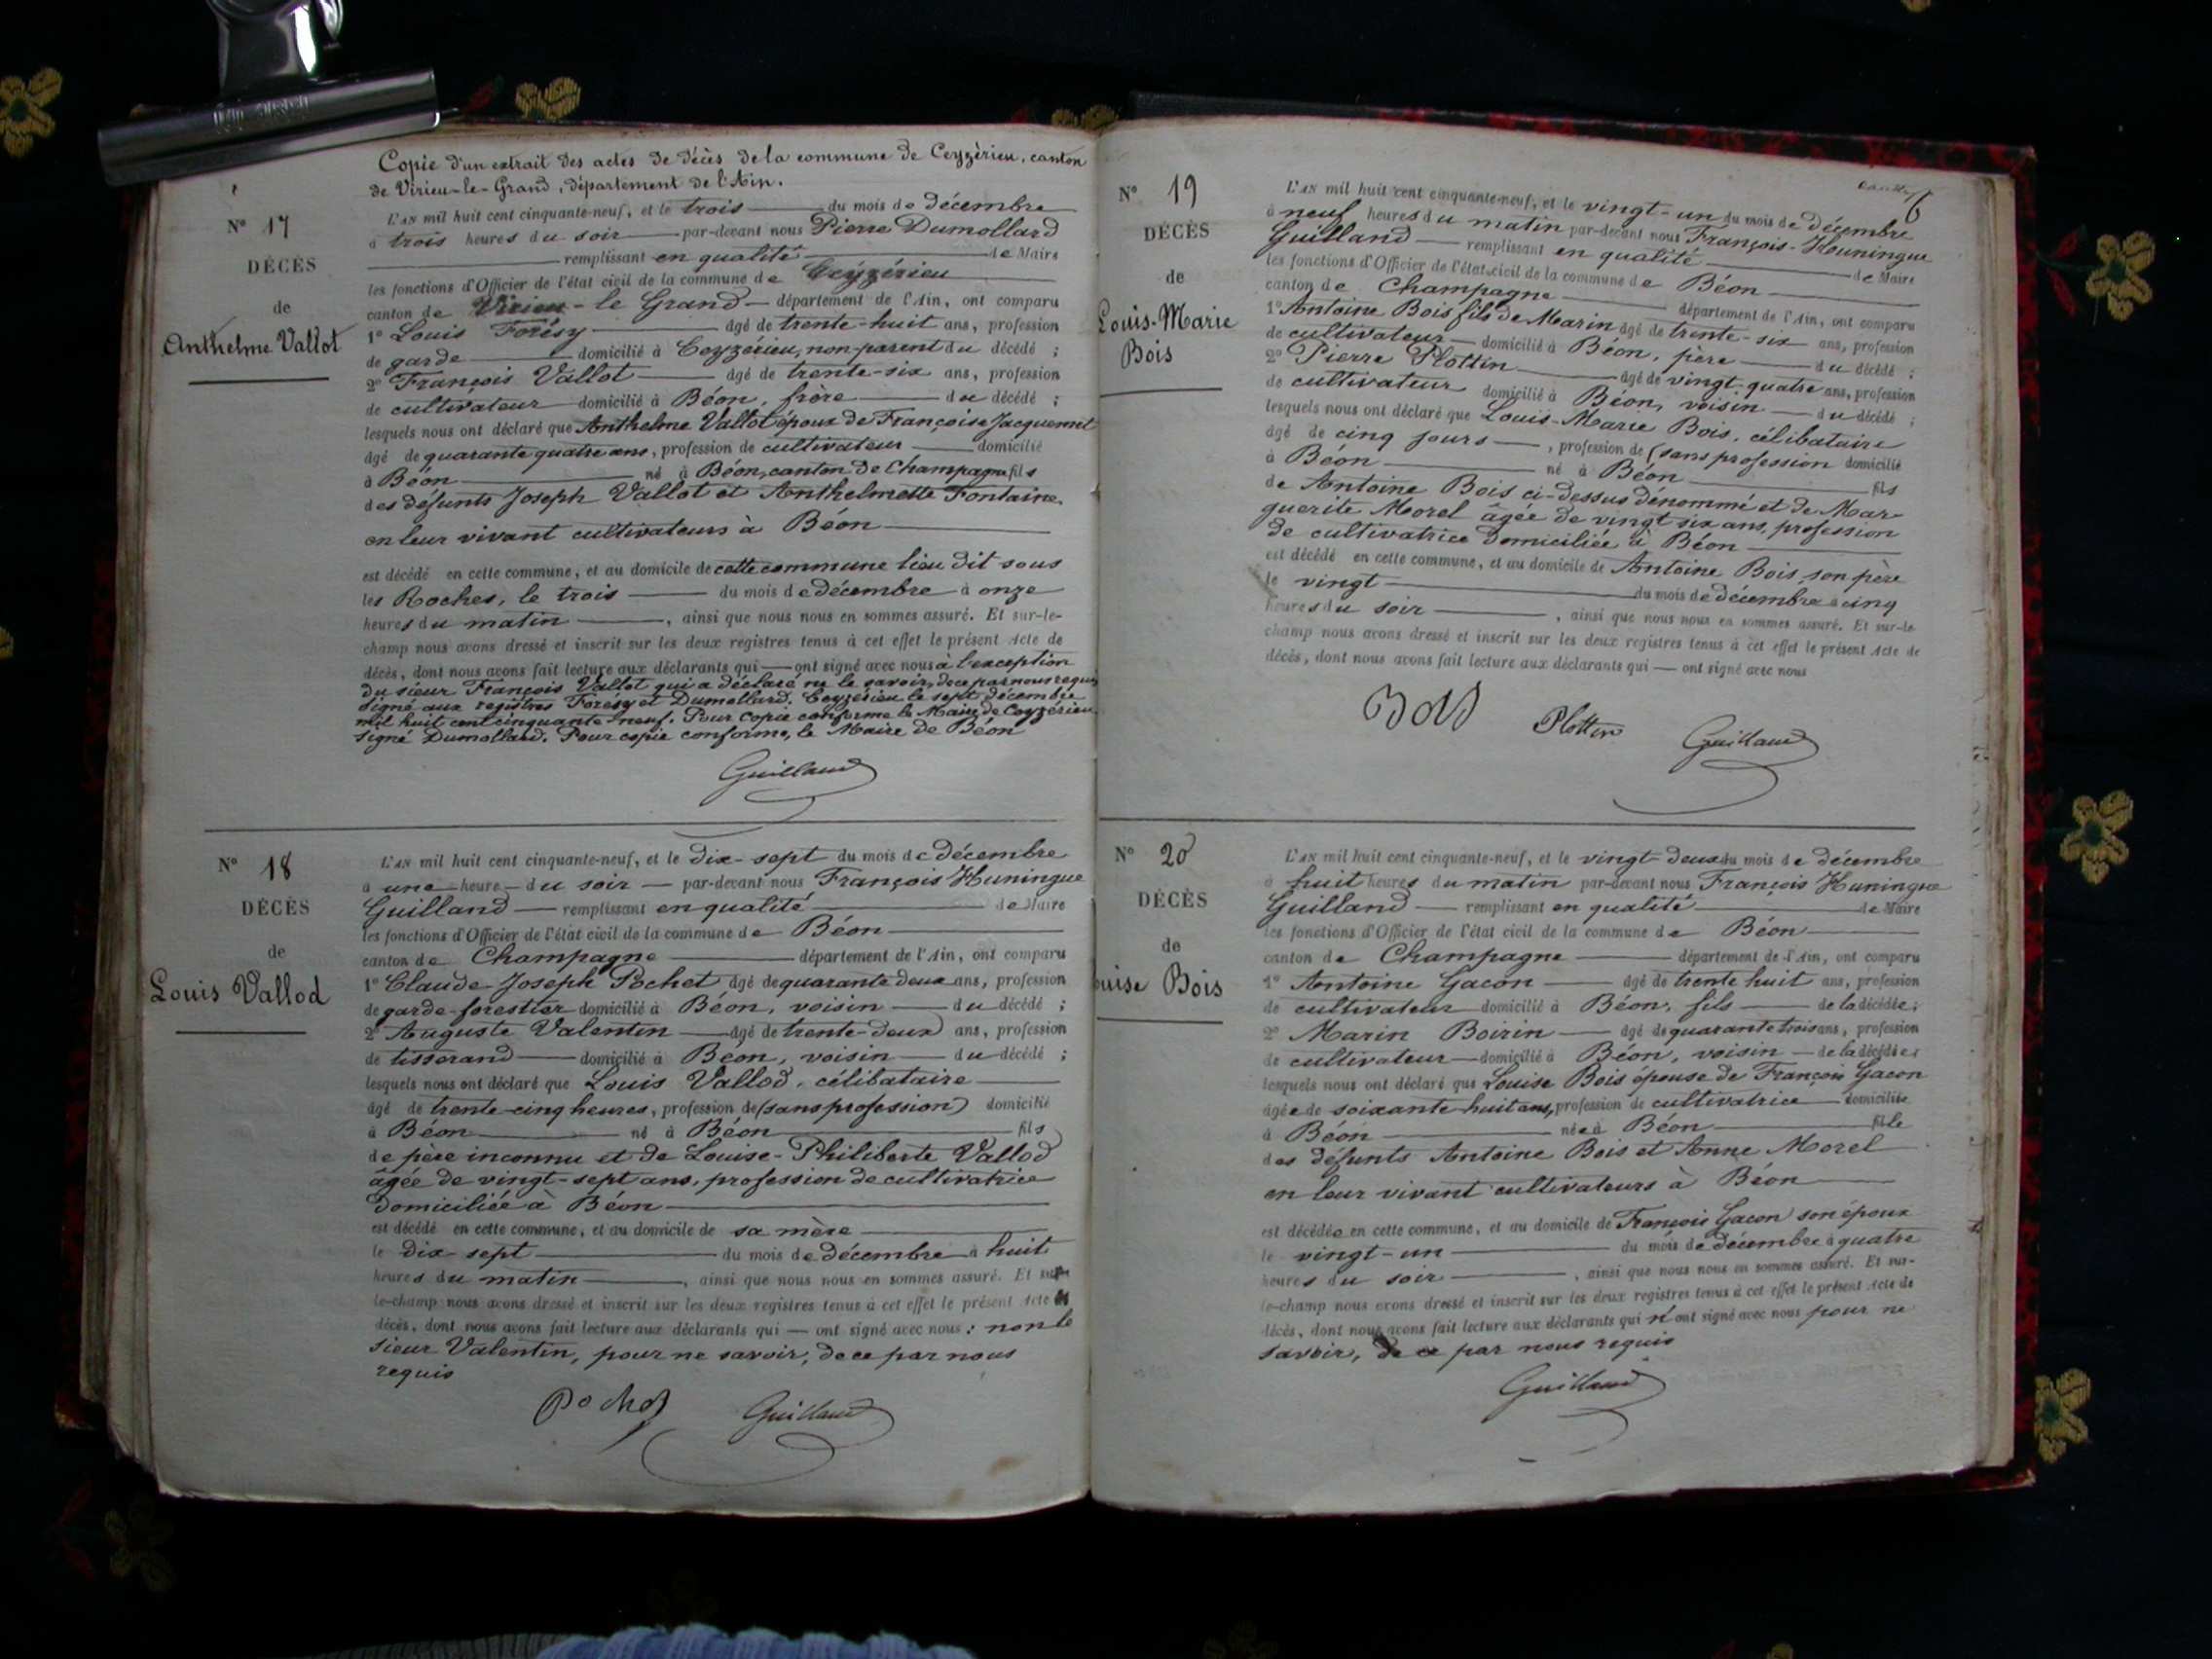 Copie d'un extrait des actes de décès de la commune de Ceyzérieu, canton
de Virieu-le-Grand, département de l'Ain.
N° 17
DÉCÈS
de
Anthelme Vallot
L'AN mil huit cent cinquante-neuf, et le trois du mois de décembre
à trois heures du soir par-devant nous Pierre Dumollard
remplissant en qualité de Maire
les fonctions d'Officier de l'état civil de la commune de Ceyzérieu
canton de Virieu-le Grand département de l'Ain, ont comparu
1° Louis Forésy âgé de trente-huit ans, profession
de garde domicilié à Ceyzérieu, non-parent du décédé ;
2° François Vallot âgé de trente-six ans, profession
de cultivateur domicilié à Béon, frère du décédé ;
lesquels nous ont déclaré que Anthelme Vallot époux de Françoise Jacquemet
âgé de quarante quatre ans, profession de cultivateur domicilié
à Béon né à Béon, canton de Champagne fils
des défunts Joseph Vallot et Anthelmette Fontaine
en leur vivant cultivateurs à Béon
est décédé en cette commune, et au domicile de cette commune lieu dit sous
les Roches, le trois du mois de décembre à onze
heures du matin , ainsi que nous nous en sommes assuré. Et sur-le-
champ nous avons dressé et inscrit sur les deux registres tenus à cet effet le présent Acte de
décès, dont nous avons fait lecture aux déclarants qui — ont signé avec nous à l'exception
du sieur François Vallot qui a déclaré ne le savoir, de ce par nous requis
signé aux registres Forésy et Dumollard. Ceyzérieu le sept décembre
mil huit cent cinquante-neuf. Pour copie conforme le Maire de Ceyzérieu
signé Dumollard. Pour copie conforme, le Maire de Béon
Guilland
N° 18
DÉCÈS
de
Louis Vallod
L'AN mil huit cent cinquante-neuf, et le dix-sept du mois de décembre
à une heure du soir — par-devant nous François Huningue
Guilland — remplissant en qualité de Maire
les fonctions d'Officier de l'état civil de la commune de Béon
canton de Champagne département de l'Ain, ont comparu
1° Claude-Joseph Pochet âgé de quarante deux ans, profession
de garde-forestier domicilié à Béon, voisin du décédé ;
2° Auguste Valentin âgé de trente-deux ans, profession
de tisserand domicilié à Béon, voisin du décédé ;
lesquels nous ont déclaré que Louis Vallod, célibataire
âgé de trente-cinq heures, profession de (sans profession) domicilié
à Béon né à Béon fils
de père inconnu et de Louise-Philiberte Vallod
âgée de vingt-sept ans, profession de cultivatrice
domiciliée à Béon
est décédé en cette commune, et au domicile de sa mère
le dix sept du mois de décembre à huit
heures du matin , ainsi que nous nous en sommes assuré. Et sur-
le-champ nous avons dressé et inscrit sur les deux registres tenus à cet effet le présent Acte de
décès, dont nous avons fait lecture aux déclarants qui — ont signé avec nous : non le
sieur Valentin, pour ne savoir, de ce par nous
requis
Pochet Guilland
N° 19
DÉCÈS
de
Louis-Marie
Bois
6
L'AN mil huit cent cinquante-neuf, et le vingt-un du mois de décembre
à neuf heures du matin par-devant nous François-Huningue
Guilland — remplissant en qualité de Maire
les fonctions d'Officier de l'état civil de la commune de Béon
canton de Champagne département de l'Ain, ont comparu
1° Antoine Bois fils de Marin âgé de trente-six ans, profession
de cultivateur domicilié à Béon, père du décédé ;
2° Pierre Plottin âgé de vingt quatre ans, profession
de cultivateur domicilié à Béon, voisin du décédé ;
lesquels nous ont déclaré que Louis-Marie Bois, célibataire
âgé de cinq jours , profession de (sans profession domicilié
à Béon né à Béon fils
de Antoine Bois ci-dessus dénommé et de Mar-
guerite Morel âgée de vingt six ans, profession
de cultivatrice domiciliée à Béon
est décédé en cette commune, et au domicile de Antoine Bois, son père
le vingt du mois de décembre à cinq
heures du soir , ainsi que nous nous en sommes assuré. Et sur-le-
champ nous avons dressé et inscrit sur les deux registres tenus à cet effet le présent Acte de
décès, dont nous avons fait lecture aux déclarants qui — ont signé avec nous
Bois Plottin Guilland
N° 20
DÉCÈS
de
ouise Bois
L'AN mil huit cent cinquante-neuf, et le vingt deux du mois de décembre
à huit heures du matin par-devant nous François Huningue
Guilland — remplissant en qualité de Maire
les fonctions d'Officier de l'état civil de la commune de Béon
canton de Champagne département de l'Ain, ont comparu
1° Antoine Gacon âgé de trente huit ans, profession
de cultivateur domicilié à Béon, fils de la décédée ;
2° Marin Boirin âgé de quarante trois ans, profession
de cultivateur domicilié à Béon, voisin — de la décédée ;
lesquels nous ont déclaré que Louise Bois épouse de François Gacon
âgée de soixante huit ans, profession de cultivatrice domiciliée
à Béon née à Béon fille
des défunts Antoine Bois et Anne Morel
en leur vivant cultivateurs à Béon
est décédée en cette commune, et au domicile de François Gacon son époux
le vingt-un du mois de décembre à quatre
heures du soir , ainsi que nous nous en sommes assuré. Et sur-
le-champ nous avons dressé et inscrit sur les deux registres tenus à cet effet le présent Acte de
décès, dont nous avons fait lecture aux déclarants qui n'ont signé avec nous pour ne
savoir, de ce par nous requis
Guilland